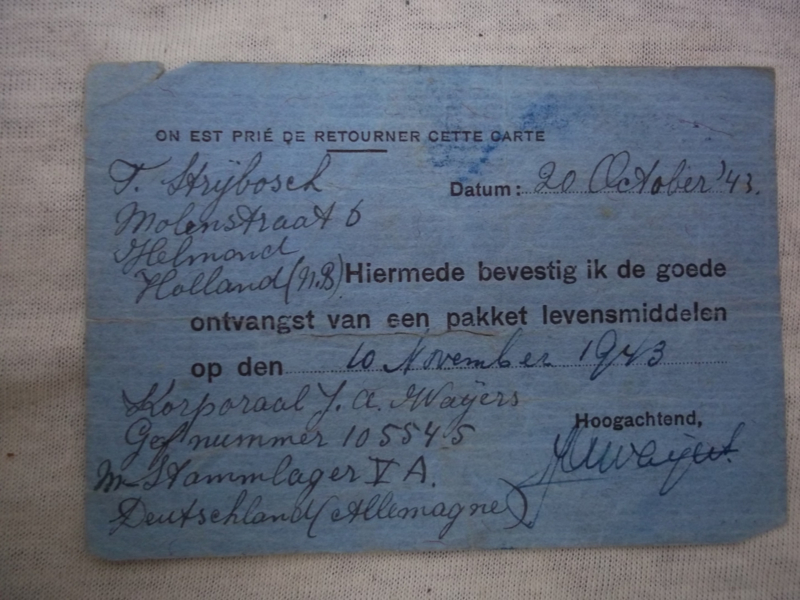 ON EST PRIÉ DE RETOURNER CETTE CARTE
T. Strijbosch
Datum: 20 October '43.
Molenstraat 6
Helmond
Holland (N.B)
Hiermede bevestig ik de goede
ontvangst van een pakket levensmiddelen
op den 10 November 1943
Korporaal J. A. Waijers
Gef nummer 105545
M-Stammlager V A.
Hoogachtend,
JAWaijers
Deutschland (Allemagne)